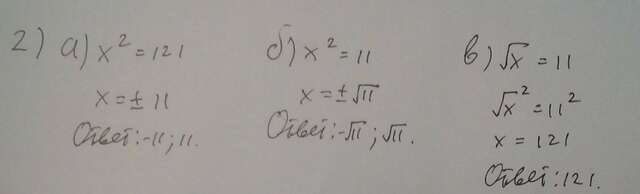 2) а) x² = 121
x = ± 11
Ответ: -11; 11.
б) x² = 11
x = ± √11
Ответ: -√11; √11.
в) √x = 11
√x² = 11²
x = 121
Ответ: 121.